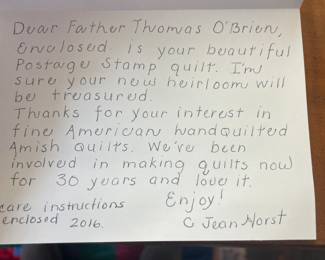 Dear Father Thomas O'Brien,
Enclosed is your beautiful
Postage Stamp quilt. I'm
sure your new heirloom will
be treasured.
Thanks for your interest in
fine American handquilted
Amish quilts. We've been
involved in making quilts now
for 30 years and love it.
Enjoy!
care instructions
enclosed 2016.
C Jean Horst